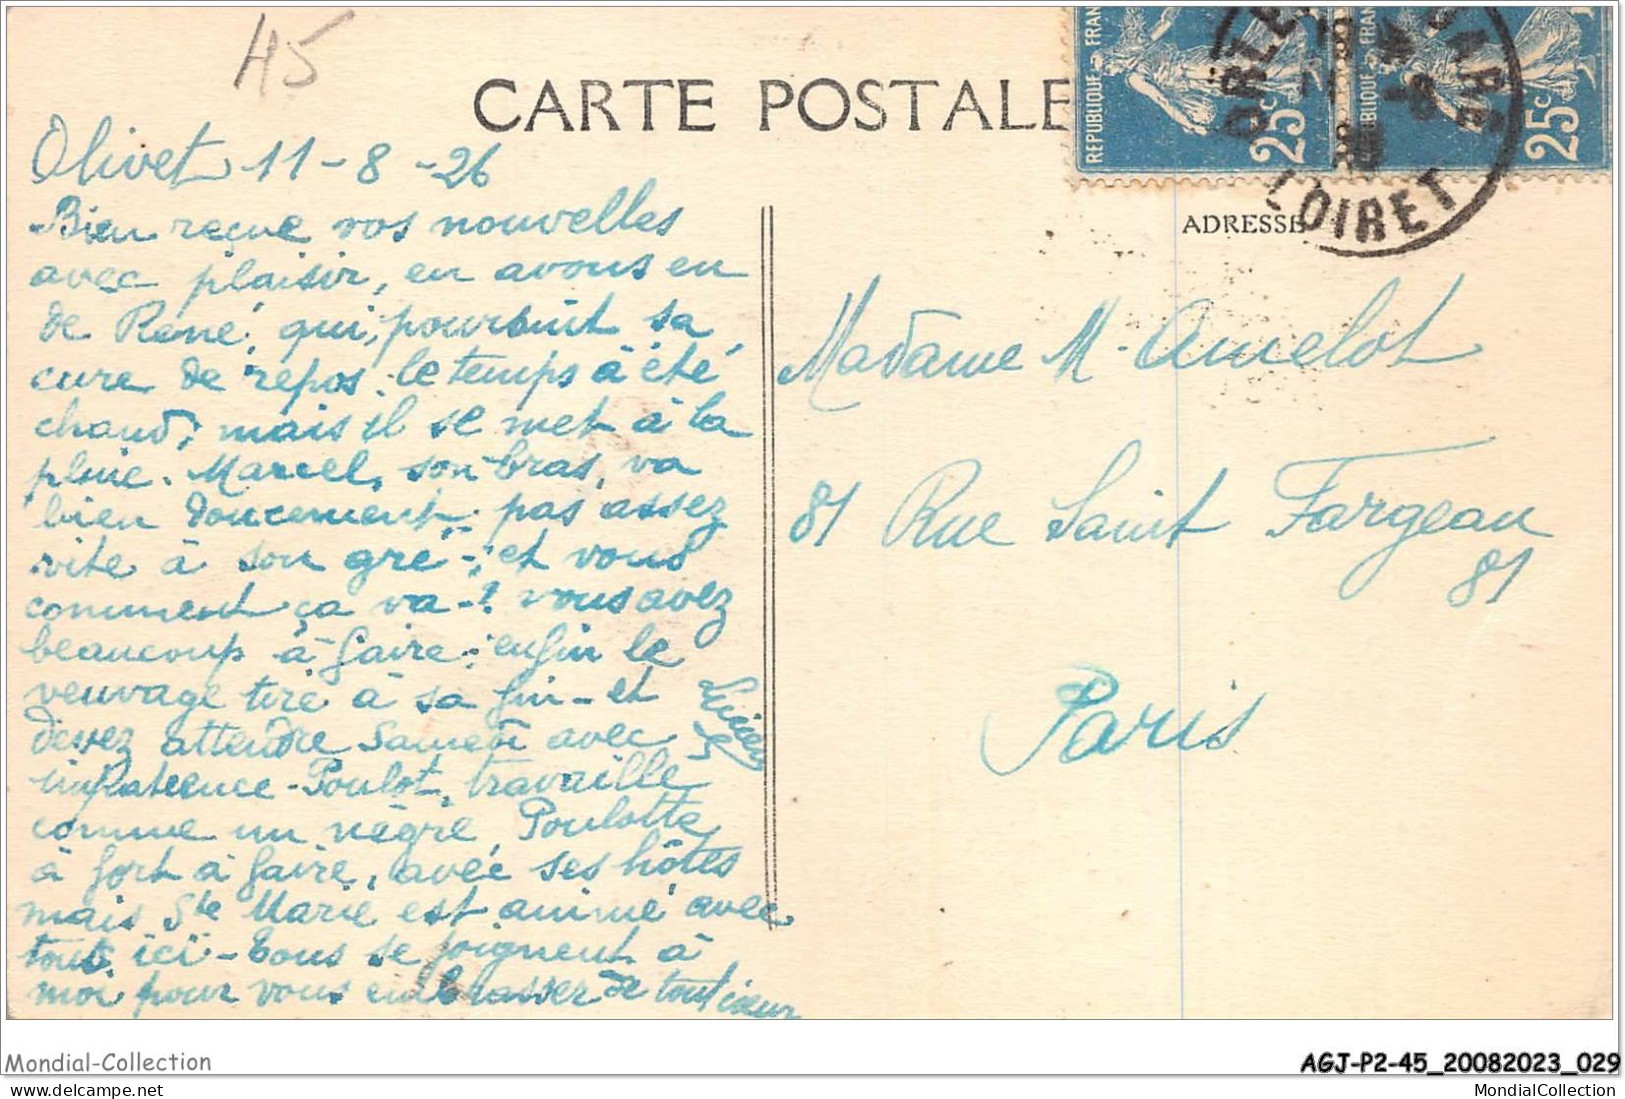 H5
CARTE POSTALE
REPUBLIQUE FRAN
25c
REPUBLIQUE FRANC
25c
GARE
LOIRET
Olivet 11-8-26
Bien reçue vos nouvelles
avec plaisir, en avons eu
de René, qui, poursuit sa
cure de repos. le temps à été
chaud, mais il se met à la
pluie. Marcel, son bras, va
bien doucement; pas assez
vite à son gré-; et vous
comment ça va-? vous avez
beaucoup à faire; enfin le
veuvage tire à sa fin - et
devez attendre Samedi avec
impatience - Poulot, travaille
comme un nègre, Poulotte,
à fort à faire, avec ses hôtes
mais Ste Marie est animé avec
tous ici - tous se joignent à
moi pour vous embrasser de tout cœur
Lucien
ADRESSE
Madame M. Amelot
81 Rue Saint Fargeau
81
Paris
Mondial-Collection
AGJ-P2-45_20082023_029
MondialCollection